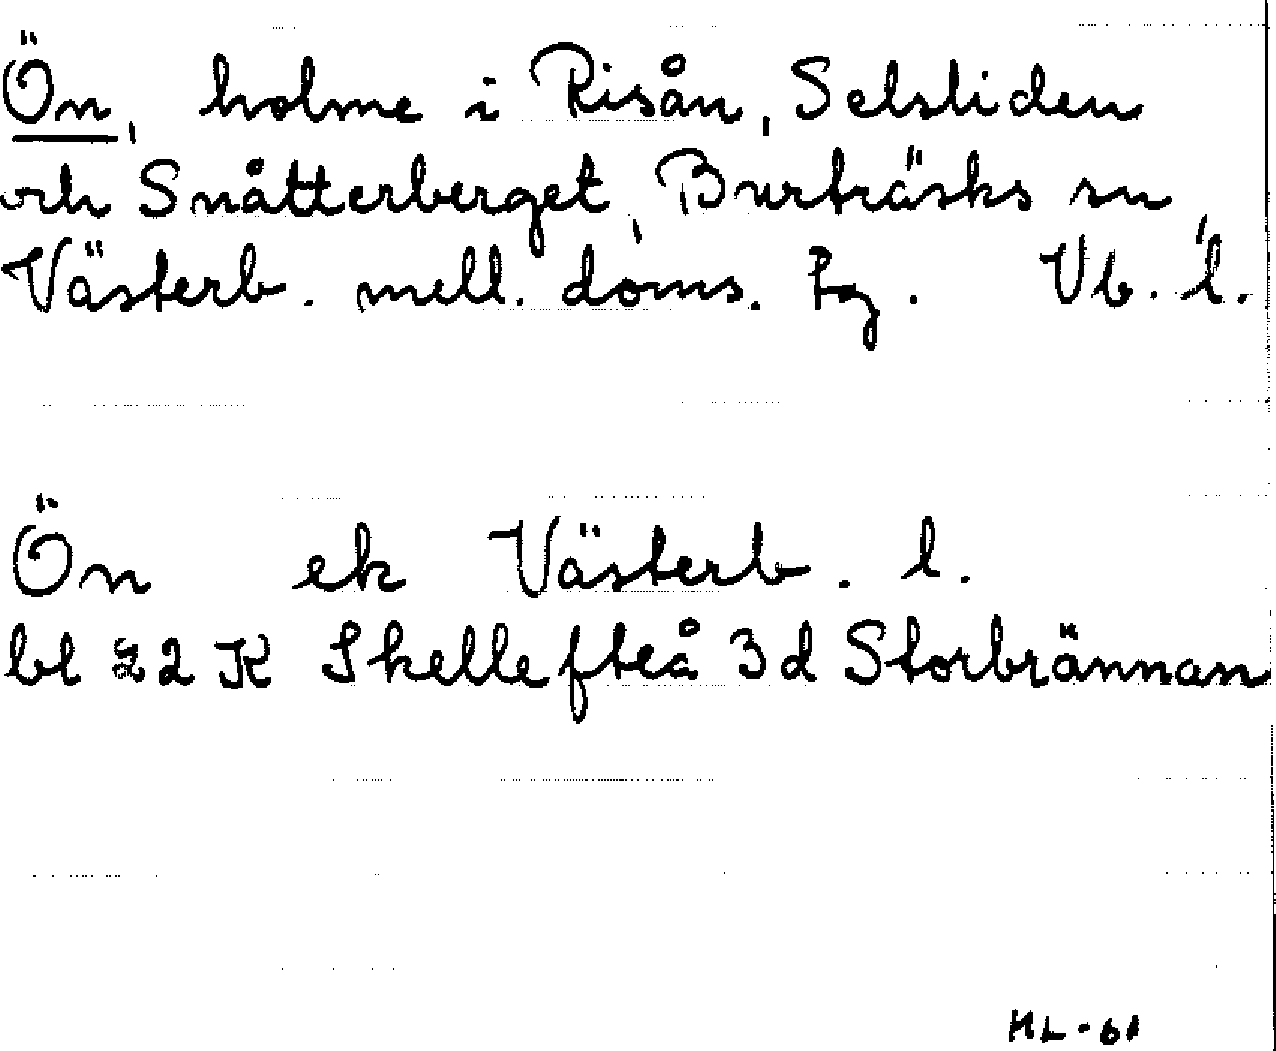 Ön, holme i Risån, Selsliden
och Snåtterberget, Burträsks sn,
Västerb. mell. doms. tg. Vb. l.
Ön ek Västerb. l.
bl 22 K Skellefteå 3d Storbrännan
HL-61